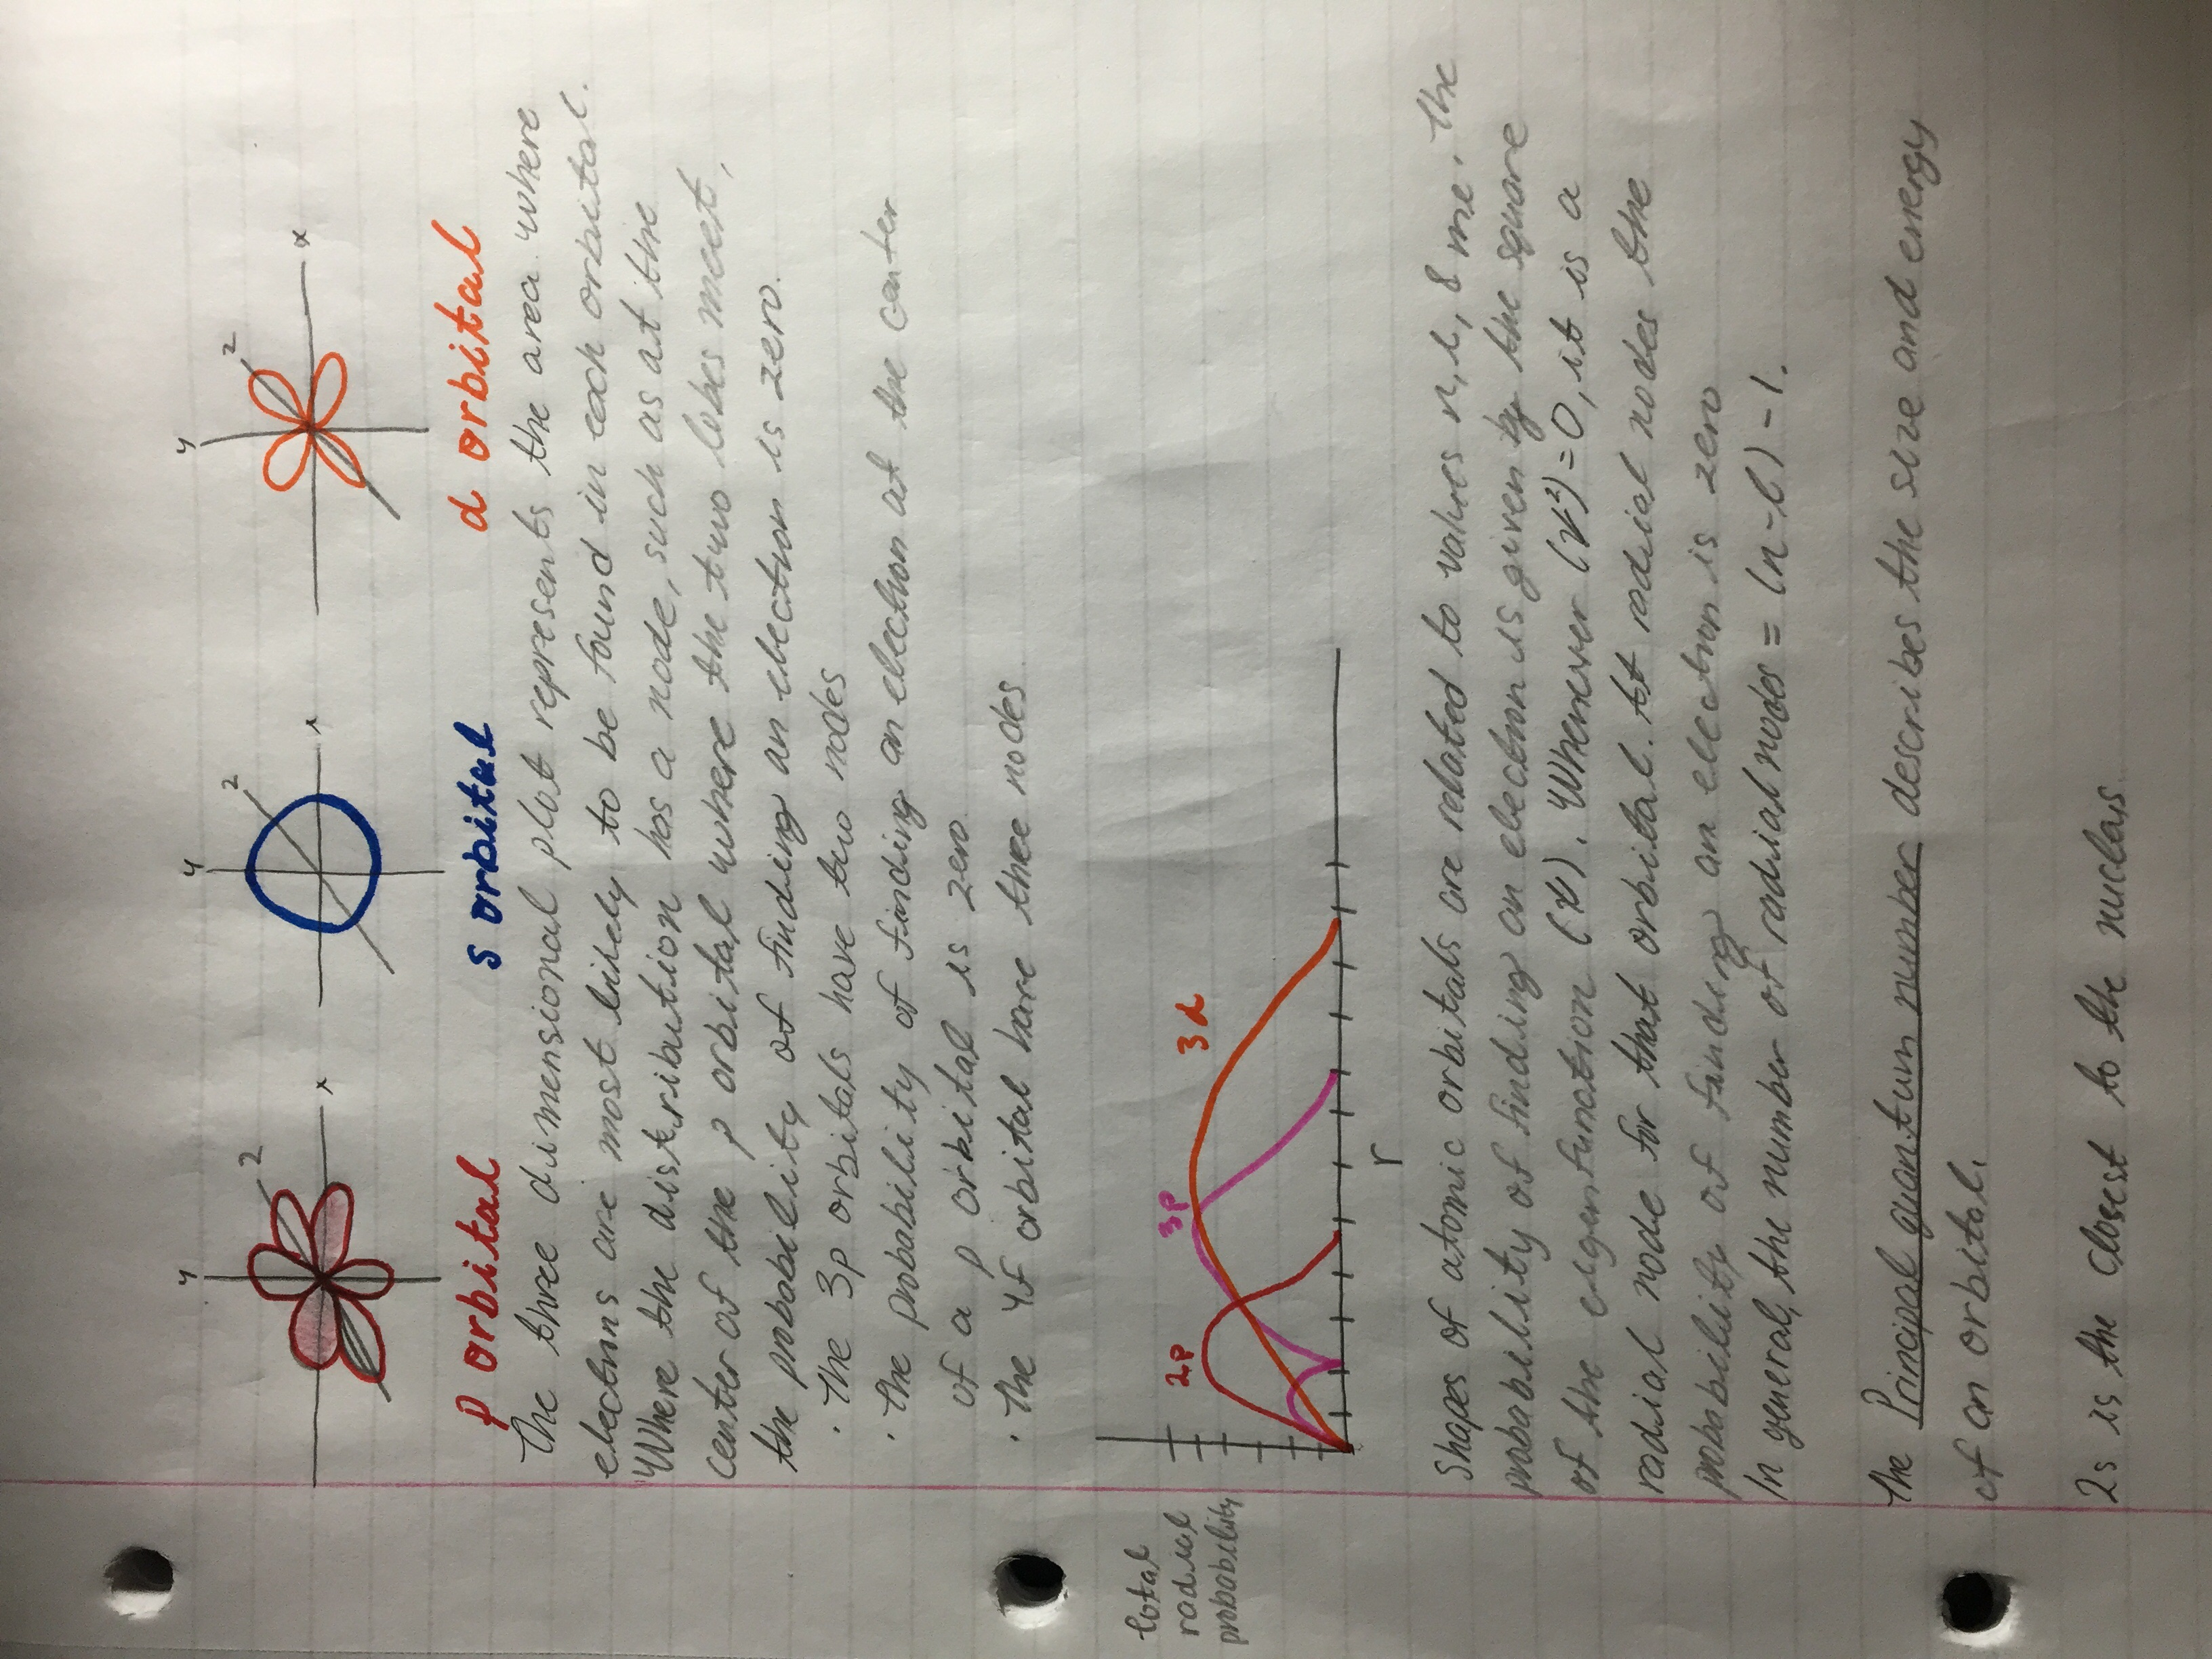 y z x
y z x
y z x
p orbital s orbital d orbital
The three dimensional plot represents the area where
electrons are most likely to be found in each orbital.
Where the distribution has a node, such as at the
center of the p orbital where the two lobes meet,
the probability of finding an electron is zero.
· The 3p orbitals have two nodes
· The probability of finding an electron at the center
of a p orbital is zero.
· The 4f orbital have three nodes
total
radial
probability
2p 3p 3d
r
Shapes of atomic orbitals are related to values n, l, & ml. The
probability of finding an electron is given by the square
of the eigenfunction (ψ). Whenever (ψ²)=0, it is a
radial node for that orbital. At radial nodes the
probability of finding an electron is zero
In general, the number of radial nodes = (n-l)-1.
The Principal quantum number describes the size and energy
of an orbital.
2s is the closest to the nuclas